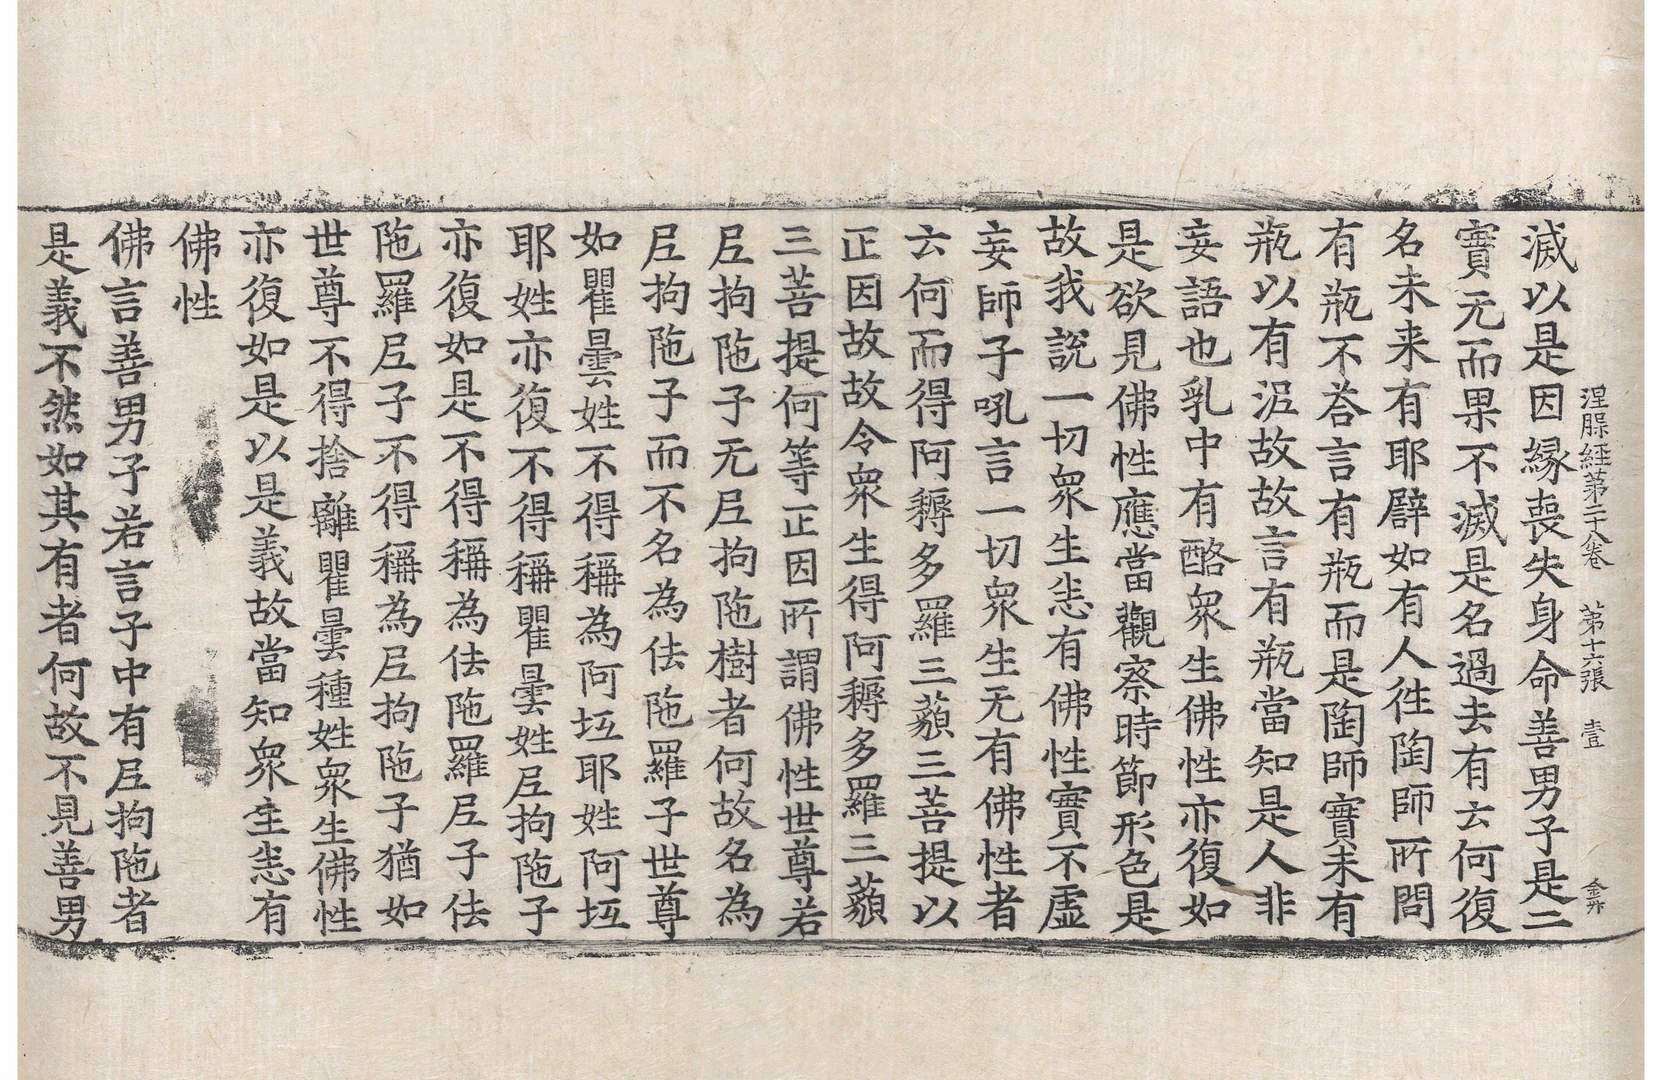 涅槃經第二十八卷　第十六張　壹
滅以是因緣喪失身命善男子是二
實无而果不滅是名過去有云何復
名未来有耶辟如有人往陶師所問
有瓶不荅言有瓶而是陶師實未有
瓶以有泥故故言有瓶當知是人非
妄語也乳中有酪衆生佛性亦復如
是欲見佛性應當觀察時節形色是
故我說一切衆生悉有佛性實不虛
妄師子吼言一切衆生无有佛性者
云何而得阿耨多羅三藐三菩提以
正因故故令衆生得阿耨多羅三藐
三菩提何等正因所謂佛性世尊若
尼拘陁子无尼拘陁樹者何故名為
尼拘陁子而不名為佉陁羅子世尊
如瞿曇姓不得稱為阿坻耶姓阿坻
耶姓亦復不得稱瞿曇姓尼拘陁子
亦復如是不得稱為佉陁羅尼子佉
陁羅尼子不得稱為尼拘陁子猶如
世尊不得捨離瞿曇種姓衆生佛性
亦復如是以是義故當知衆生悉有
佛性
佛言善男子若言子中有尼拘陁者
是義不然如其有者何故不見善男